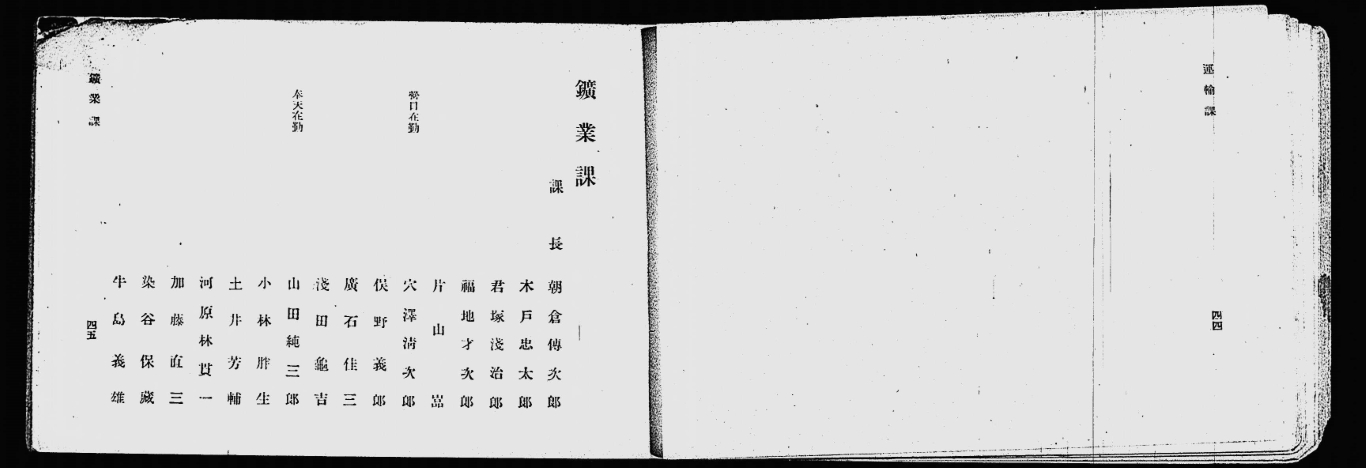 運輸課
四四
鑛業課
課長 朝倉傳次郎
木戸忠太郎
君塚淺治郎
福地才次郎
片山嵓
營口在勤 穴澤淸次郎
俣野義郎
廣石佳三
淺田龜吉
奉天在勤 山田純三郎
小林胖生
土井芳輔
河原林貫一
加藤直三
染谷保藏
牛島義雄
鑛業課
四五